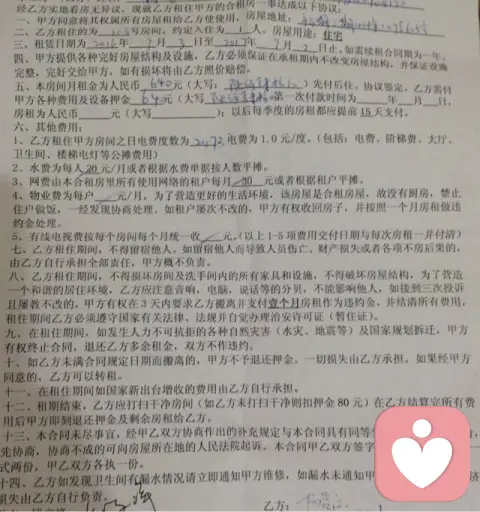 经乙方实地看房无异议，现就乙方租住甲方的合租房一事达成以下协议：
一、甲方同意将其权属所有房屋租给乙方使用，房屋地址：
二、乙方租住的为 103 号房间，约定入住为 1 人，房屋用途：住宅
三、租赁日期为 2016 年 7 月 3 日至 2017 年 7 月 2 日止，如需续租合同期为一年，
四、甲方提供各种完好房屋结构及设施，乙方必须保证在承租期内不改变房屋结构，并保证设施
完整，完好交给甲方，如有损坏将由乙方照价赔偿。
五、本房间月租金为人民币 640 元（大写： ）先付后住，协议签定，乙方需付
甲方各种费用及设备押金 640 元（大写 第一次付款时间为 年 月 日，
房租为人民币 元（大写 ）；以后每季度的房租都应提前 15 天支付。
六、其他费用：
1、乙方租住甲方房间之日电费度数为 2472 电费为 1.0 元/度。（包括：电费、阶梯费、大厅、
卫生间、楼梯电灯等公摊费用）
2、水费为每人 20 元/月或者根据水费单据按人数平摊。
3、网费由本合租房里所有使用网络的租户每月 30 元或者根据租户平摊。
4、物业费为每户 元/月。为了营造更好的生活环境，该房屋是合租房屋，故没有厨房，禁止
住户做饭，一经发现协商处理。如租户屡次不改的，甲方有权收回房子，并按照一个月房租做违
约金处理。
5、有线电视费按每个房间每个月统一收 元。（以上 1-5 项费用交付日期与每次房租一并付清）
七、乙方租住期间，不得留宿他人，如留宿他人而导致人员伤亡、财产损失或者各项不良后果的，
由乙方自行承担全部责任，甲方概不负责。
八、乙方租住期间，不得损坏房间及洗手间内的所有家具和设施，不得破坏房屋结构，为了营造
一个和谐的居住环境，乙方应注意音响，电脑，说话等的分贝，不能影响他人，如接到三次投诉
且屡教不改的，甲方有权在 3 天内要求乙方搬离并支付壹个月房租作为违约金，并结清所有费用，
租住期间乙方必须遵守国家有关法律、法规并自觉办理治安许可证（暂住证）。
九，在租住期间，如发生人力不可抗拒的各种自然灾害（水灾、地震等）及国家规划拆迁，甲方
有权终止合同，退还乙方多余租金，双方不作违约。
十、如乙方未满合同规定日期而搬离的，甲方不予退还押金。一切损失由乙方承担。如果经甲方
同意的，乙方可以转租。
十一、在租住期间如国家新出台增收的费用由乙方自行承担。
十二、租期结束，乙方应打扫干净房间（如乙方未打扫干净则扣押金 80 元）在乙方结算完所有费
用后甲方即刻退还押金及剩余房租给乙方。
十三、本合同未尽事宜，经甲乙双方协商作出的补充规定与本合同具有同等
先协商，协商不成的可向房屋所在地的人民法院起诉。本合同甲乙双方签字
式两份，甲乙双方各执一份。
十四、乙方如发现卫生间有漏水情况请立即通知甲方维修，如漏水未通知甲 济
损失由乙方自行负责。
乙方：